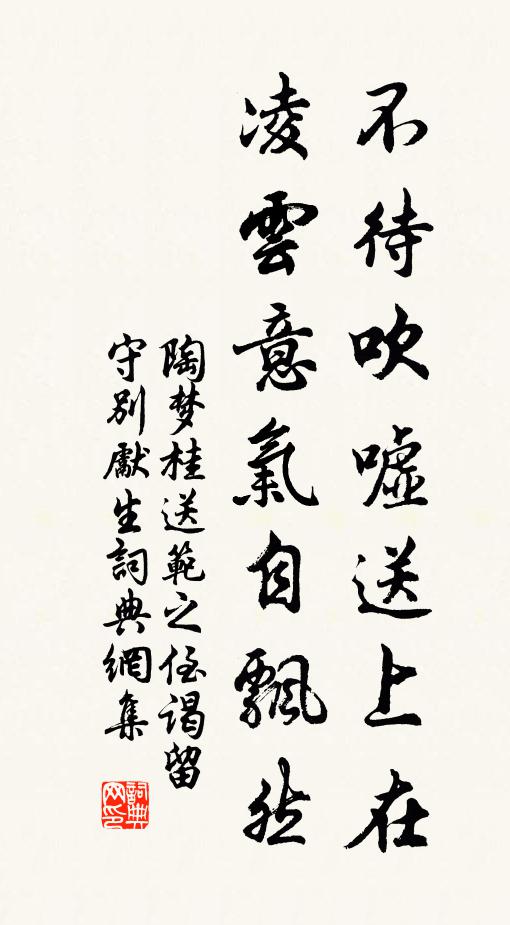 不待吹噓送上在
凌雲意氣自飄然
陶梦桂送範之侄謁留
守別獻生詞典網集
詞典网印